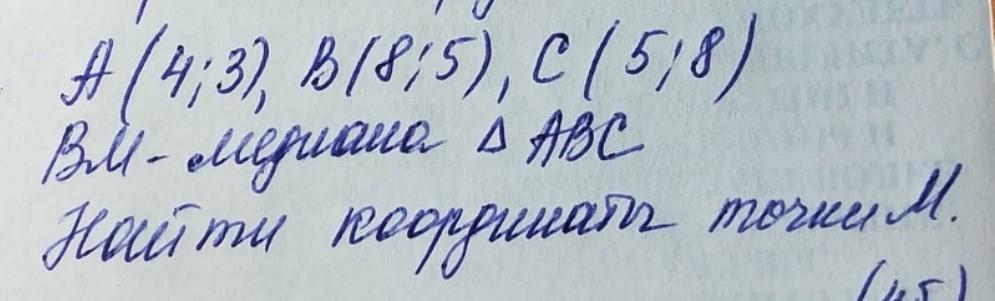 A (4;3), B(8;5), C (5;8)
BM - медиана △ ABC
Найти координаты точки M.